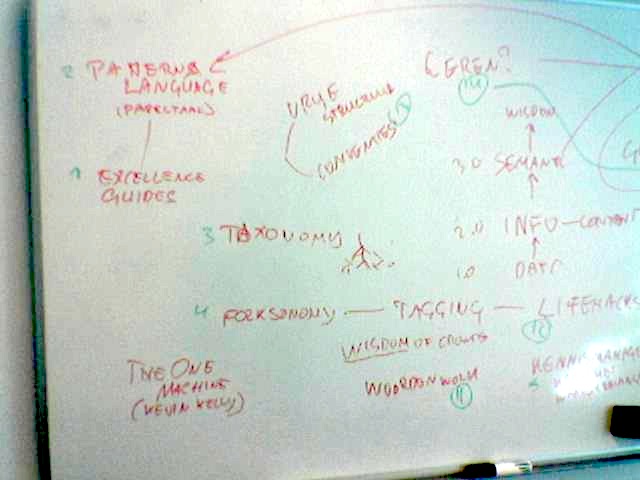 2 PATTERNS
LANGUAGE
(PATROONTAAL)
1 EXCELLENCE
GUIDES
VRIJE
STRUCTUUR
CONVENTIES
LEREN?
WISDOM
3.0 SEMANTIC
3 TAXONOMY
2.0 INFO — CONTENT
1.0 DATA
4 FOLKSONOMY — TAGGING — LIFEHACKS
12
WISDOM OF CROWDS
THE ONE
MACHINE
(KEVIN KELLY)
WOORDENWOLK
11
KENNISMANAGE